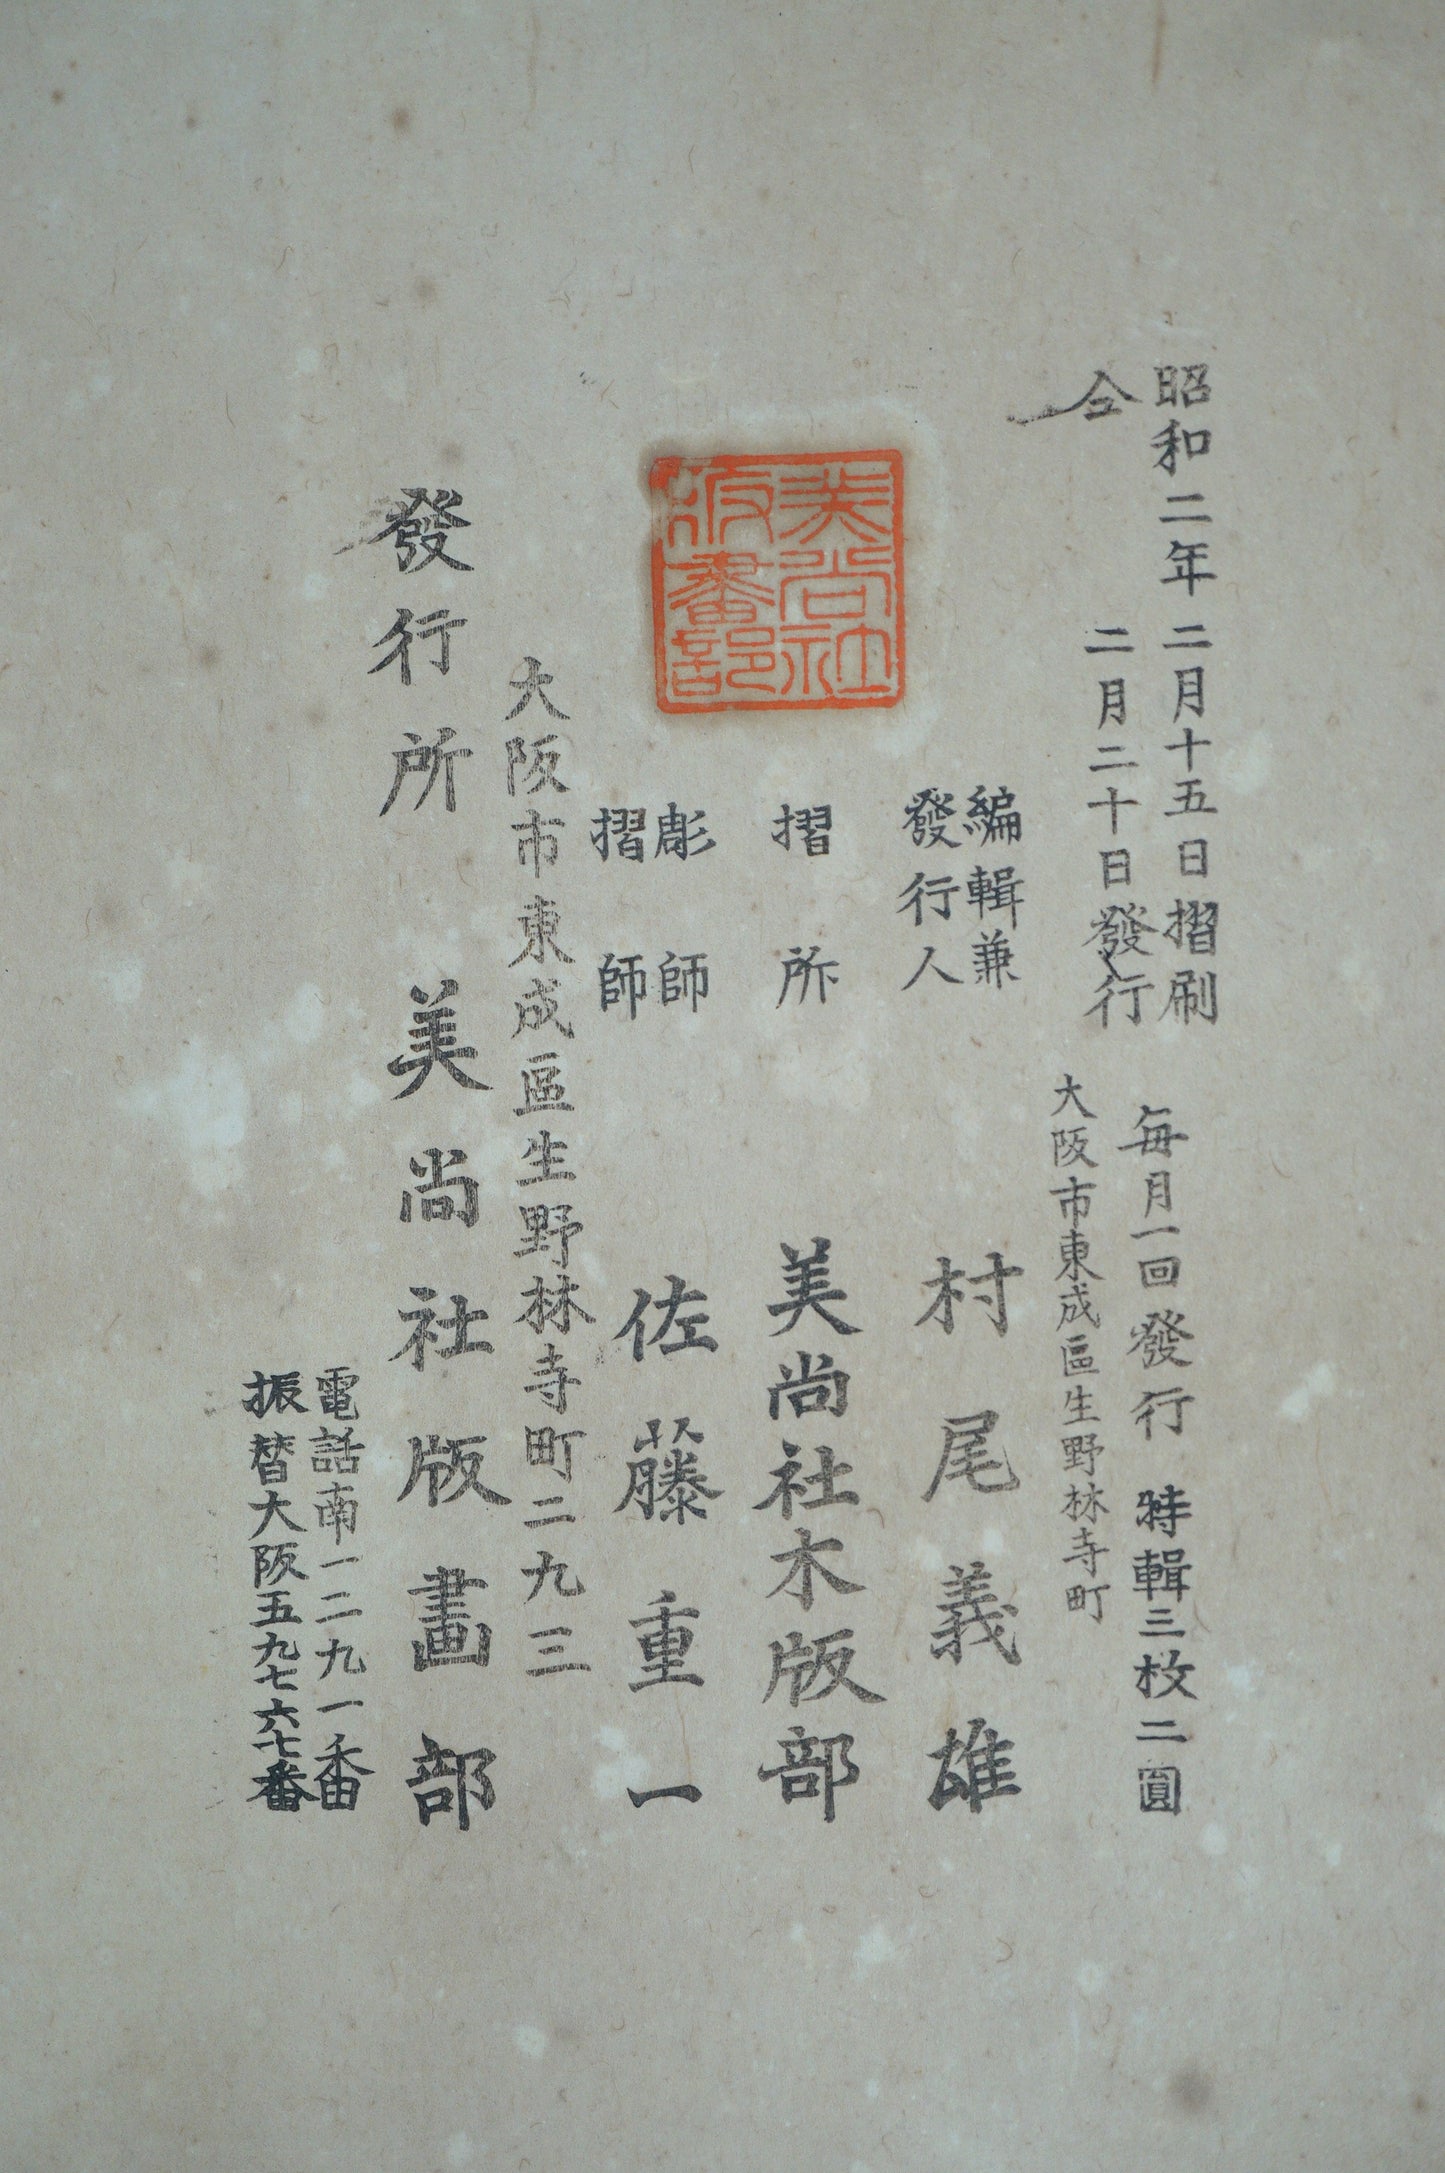 昭和二年 二月十五日摺刷
仝 二月二十日發行
每月一回發行 特輯三枚二圓
大阪市東成區生野林寺町
編輯兼
發行人
村尾義雄
摺所 美尚社木版部
彫師
摺師
佐藤重一
美尚社
版畫部
大阪市東成區生野林寺町二九三
發行所 美尚社版畫部
電話南一二九一番
振替大阪五九七六七番